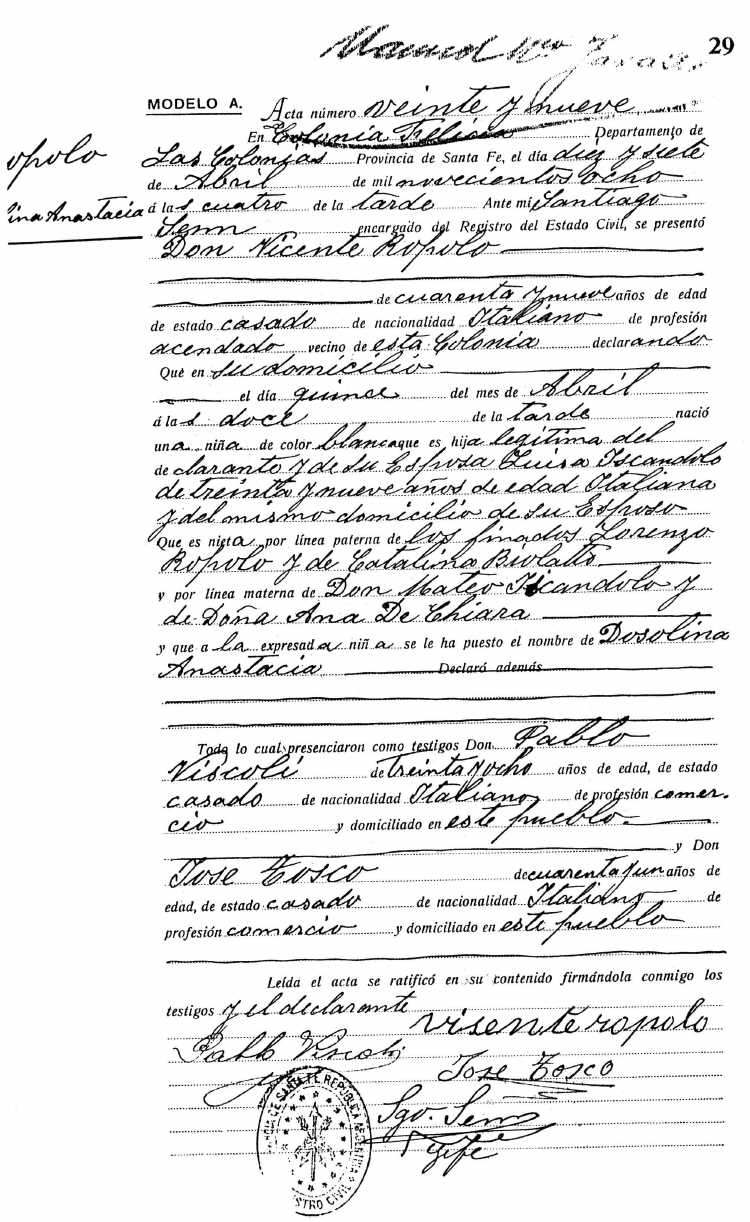 29
MODELO A. Acta número veinte y nueve
En Colonia Felicia Departamento de
opolo
Las Colonias Provincia de Santa Fe, el día diez y siete
de Abril de mil novecientos ocho
ina Anastacia
á las cuatro de la tarde Ante mi Santiago
Senn encargado del Registro del Estado Civil, se presentó
Don Vicente Ropolo
de cuarenta y nueve años de edad
de estado casado de nacionalidad Italiano de profesión
acendado vecino de esta Colonia declarando
Que en su domicilio
el día quince del mes de Abril
á las doce de la tarde nació
una niña de color blanca que es hija legitima del
declarante y de su Esposa Luisa Iscandolo
de treinta y nueve años de edad Italiana
y del mismo domicilio de su Esposo
Que es nieta por línea paterna de los finados Lorenzo
Ropolo y de Catalina Biolatto
y por línea materna de Don Mateo Iscandolo y
de Doña Ana De Chiara
y que a la expresada niña se le ha puesto el nombre de Dosolina
Anastacia Declaró además
Todo lo cual presenciaron como testigos Don Pablo
Viscoli de treinta y ocho años de edad, de estado
casado de nacionalidad Italiano de profesión comer-
cio y domiciliado en este pueblo.
y Don
Jose Tosco de cuarenta y un años de
edad, de estado casado de nacionalidad Italiano de
profesión comercio y domiciliado en este pueblo
Leída el acta se ratificó en su contenido firmándola conmigo los
testigos y el declarante
visente ropolo
Pablo Viscoli
Jose Tosco
Sgo. Senn
Gefe
DE SANTA FE REPUBLICA ARGENTINA